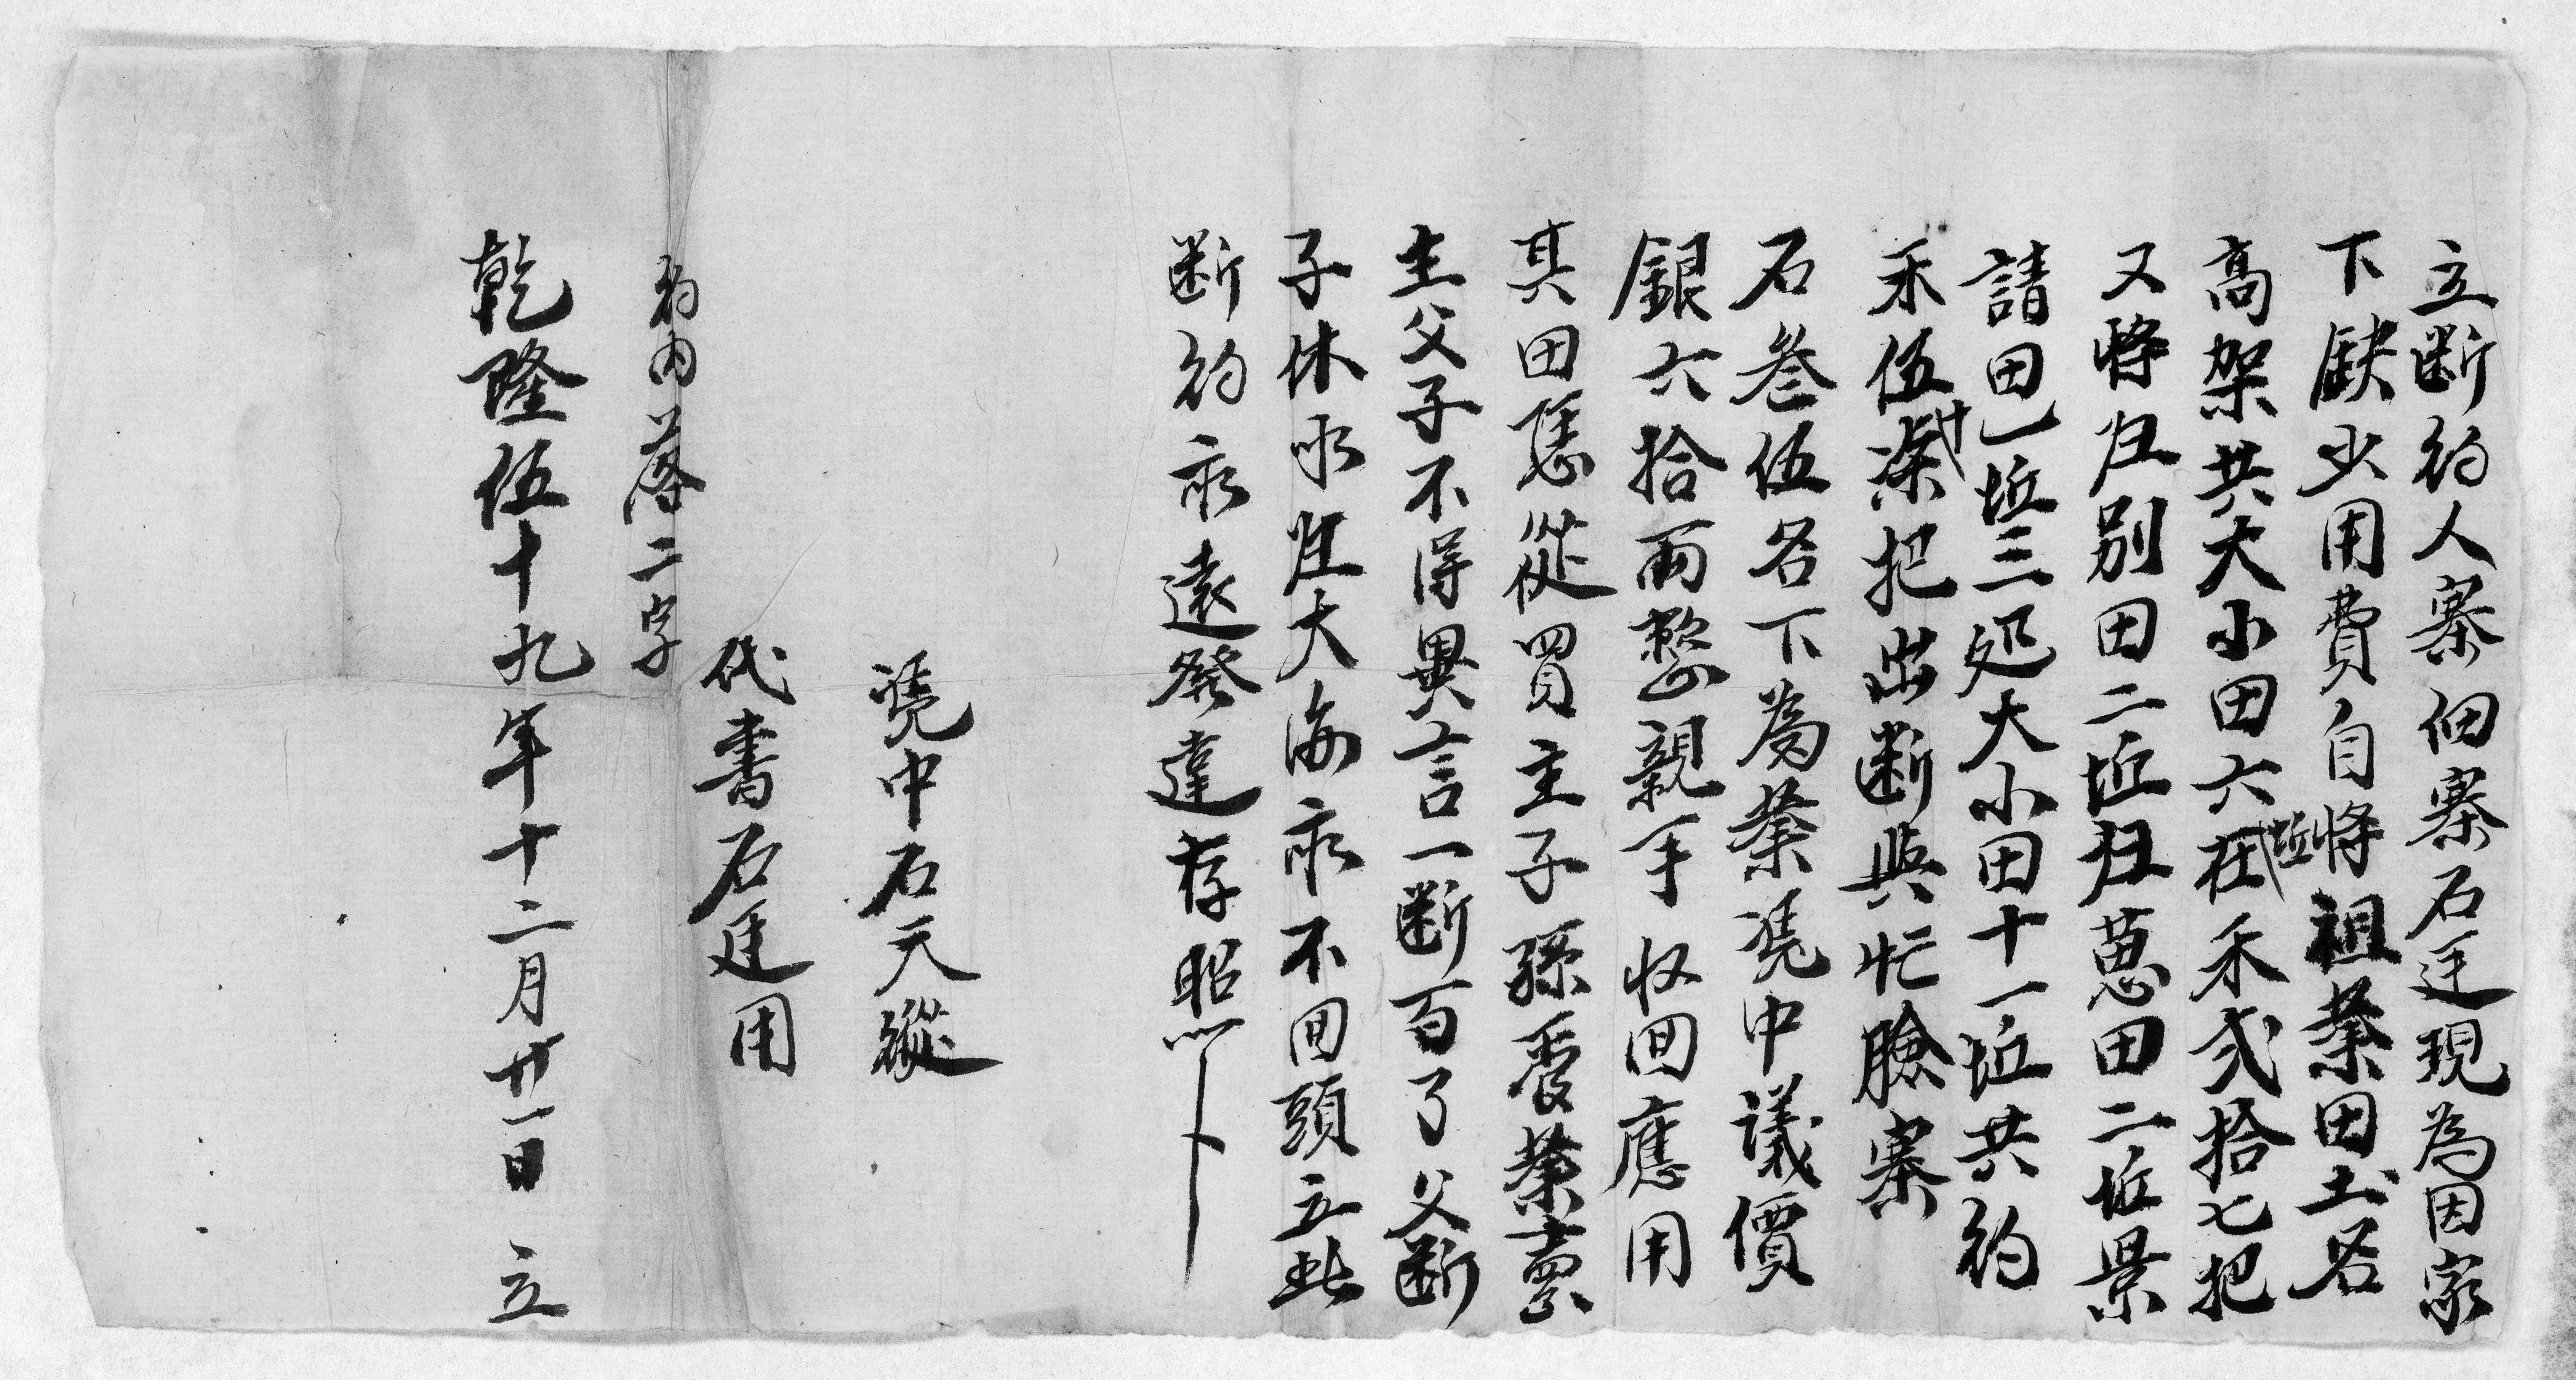 立断約人寨佃寨石廷現為因家
下缺少用費自将祖業田土名
高架共大小田六坵在禾貳拾七把
又将归別田二坵归葱田二坵景
請田乙坵三処大小田十一坵共約
禾伍拾把出断與忙臉寨
石叁伍名下為業凴中議價
銀六拾兩整親手收回應用
其田慿從買主子孫受業賣
主父子不得異言一断百了父断
子休永归大海永不回頭立此
断約永遠發達存照
凴中石天縱
代書石廷用
約內落二字
乾隆伍十九年十二月廿一日 立